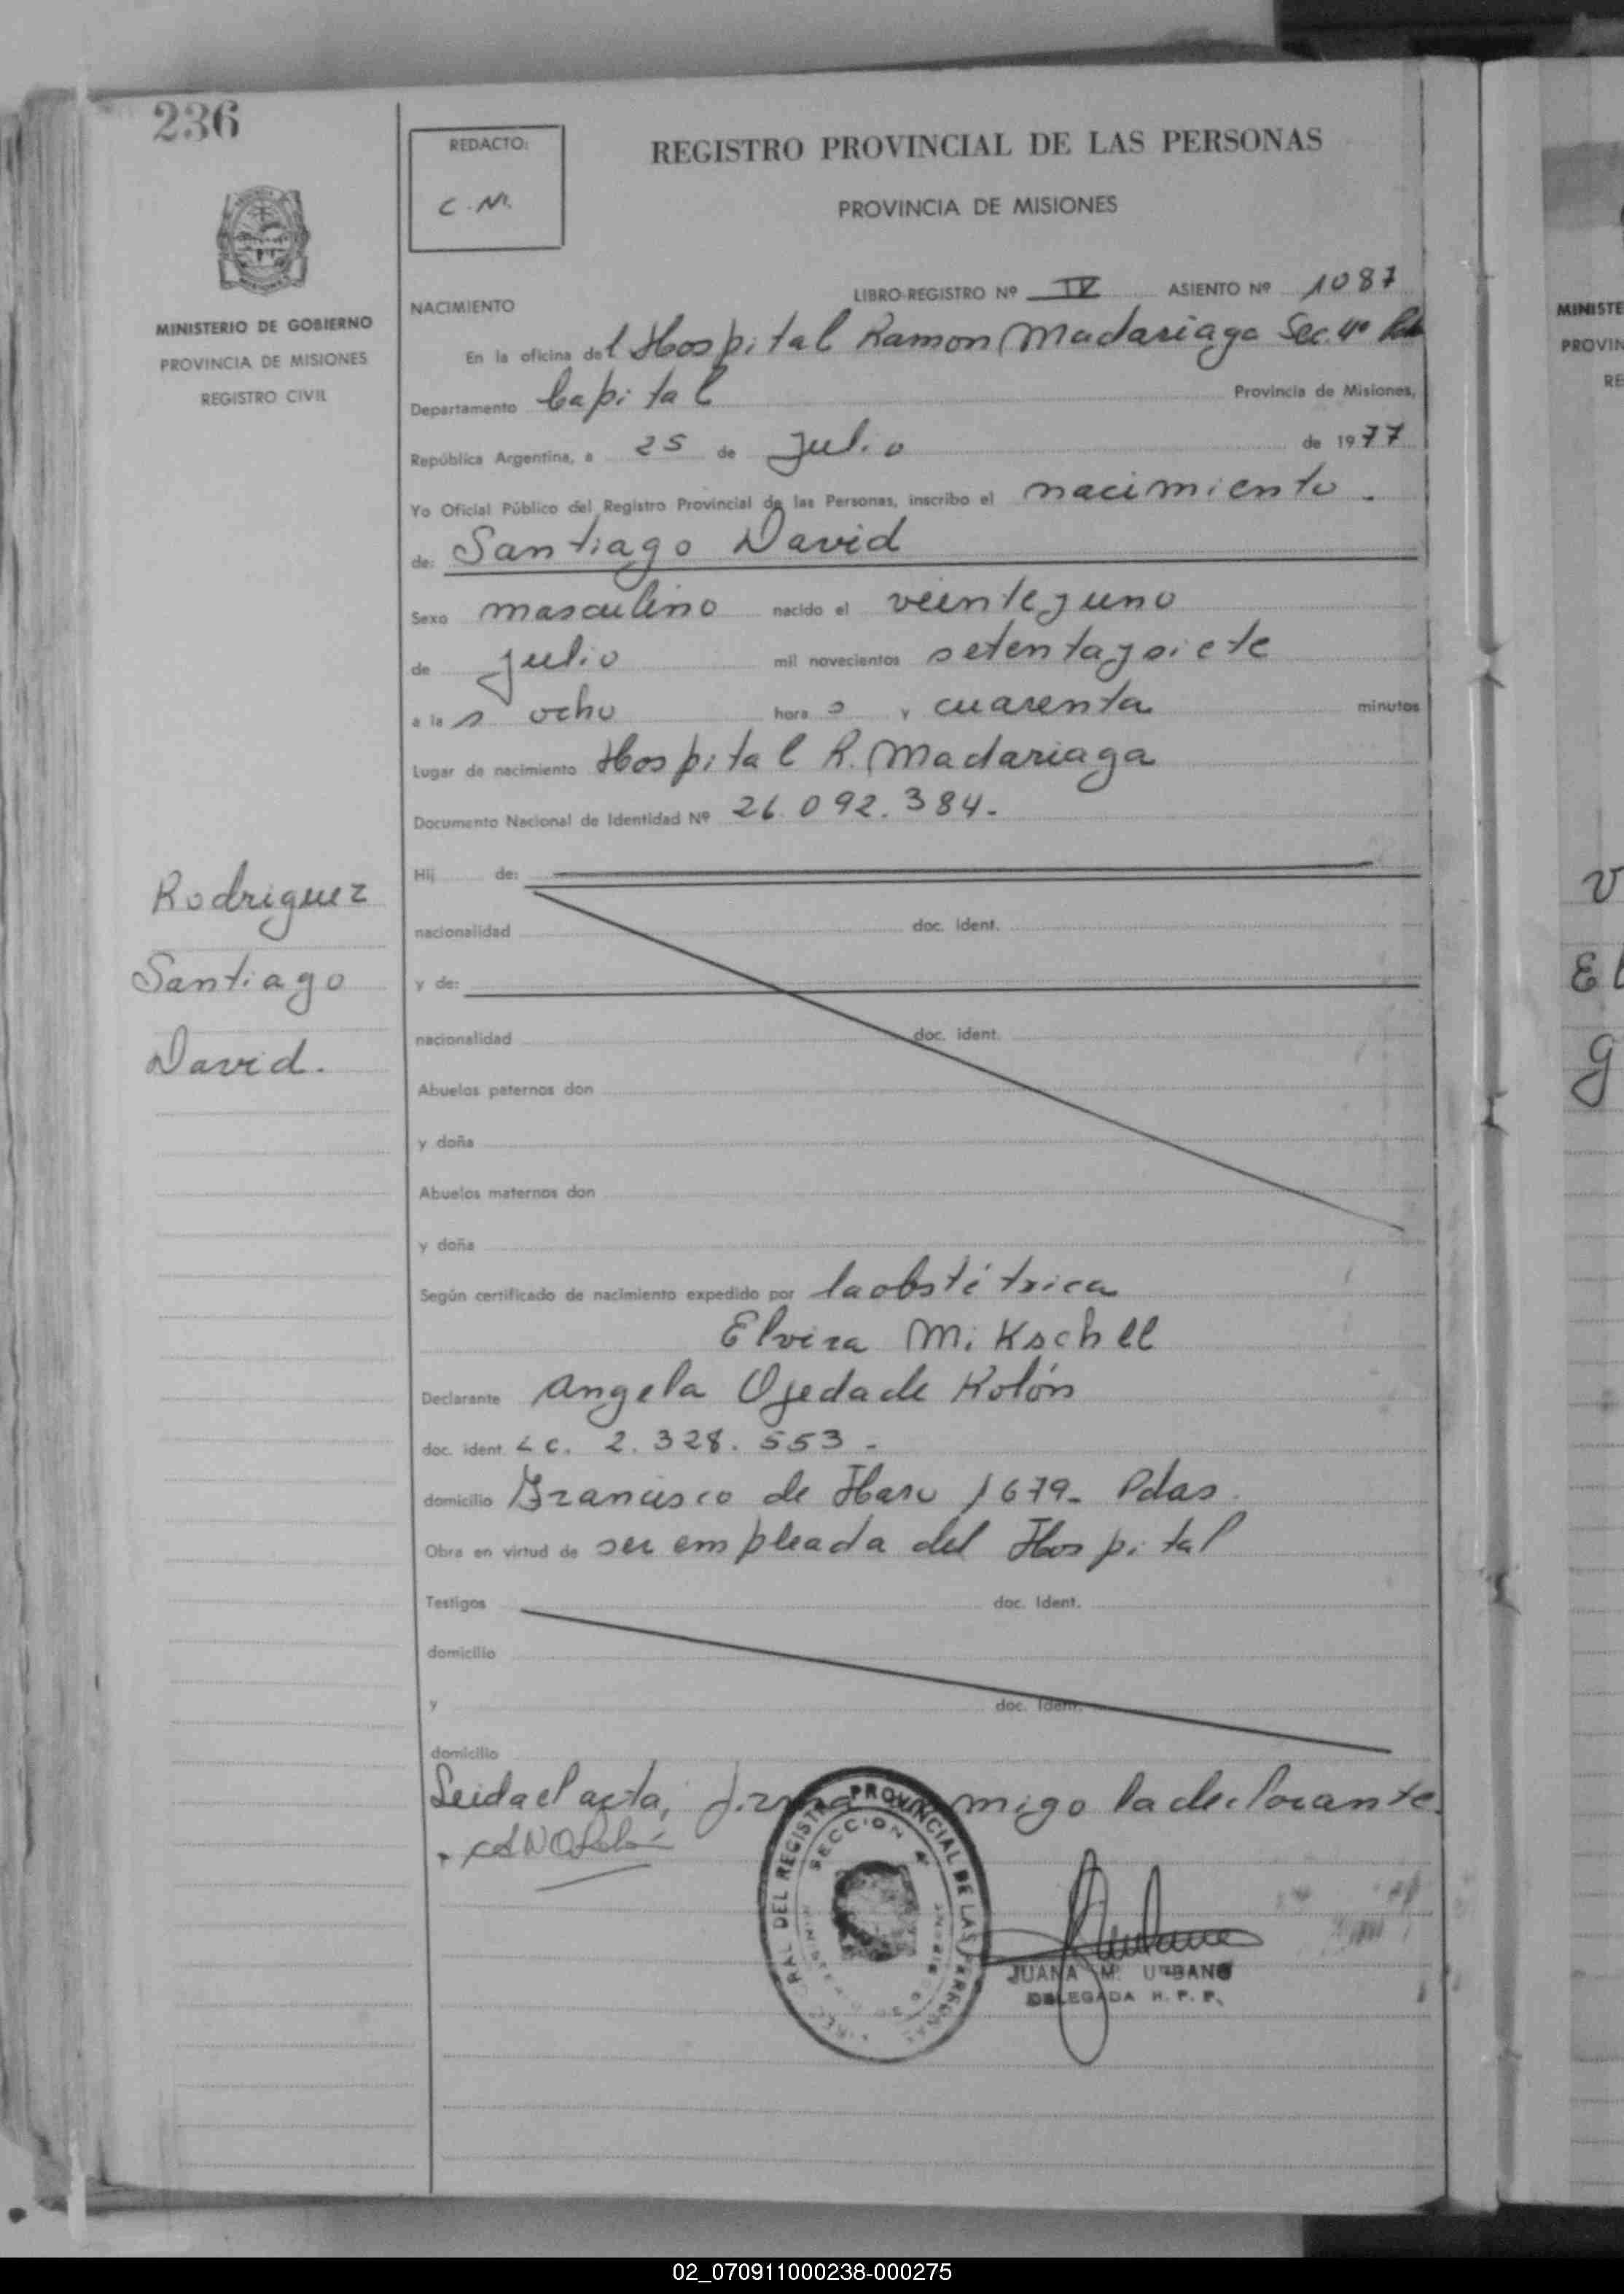 236
REDACTO:
C.M.
REGISTRO PROVINCIAL DE LAS PERSONAS
PROVINCIA DE MISIONES
MINISTERIO DE GOBIERNO
PROVINCIA DE MISIONES
REGISTRO CIVIL
NACIMIENTO
LIBRO-REGISTRO Nº IV ASIENTO Nº 1087
En la oficina del Hospital Ramon Madariaga Sec. 4º
Departamento Capital Provincia de Misiones,
República Argentina, a 25 de Julio de 1977
Yo Oficial Público del Registro Provincial de las Personas, inscribo el nacimiento.
de: Santiago David
Sexo masculino nacido el veinteyuno
de julio mil novecientos setentaysiete
a las ocho horas y cuarenta minutos
Lugar de nacimiento Hospital R. Madariaga
Documento Nacional de Identidad Nº 26.092.384.
Rodriguez
Santiago
David.
Hij de:
nacionalidad doc. ident.
y de:
nacionalidad doc. ident.
Abuelos paternos don
y doña
Abuelos maternos don
y doña
Según certificado de nacimiento expedido por la obstétrica
Elvira Mikschll
Declarante Angela Ojeda de Rolón
doc. ident. L C. 2.328.553.
domicilio Francisco de Haro 1679. Pdas.
Obra en virtud de ser empleada del Hospital
Testigos doc. Ident.
domicilio
y doc. Ident.
domicilio
Leida el acta, firma migo la declarante.
REGISTRO PROVINCIAL DE LAS PERSONAS
SECCION 4
JUANA M. URBANO
DELEGADA R. P. P.
MINISTE
PROVIN
RE
V
El
g
02_070911000238-000275